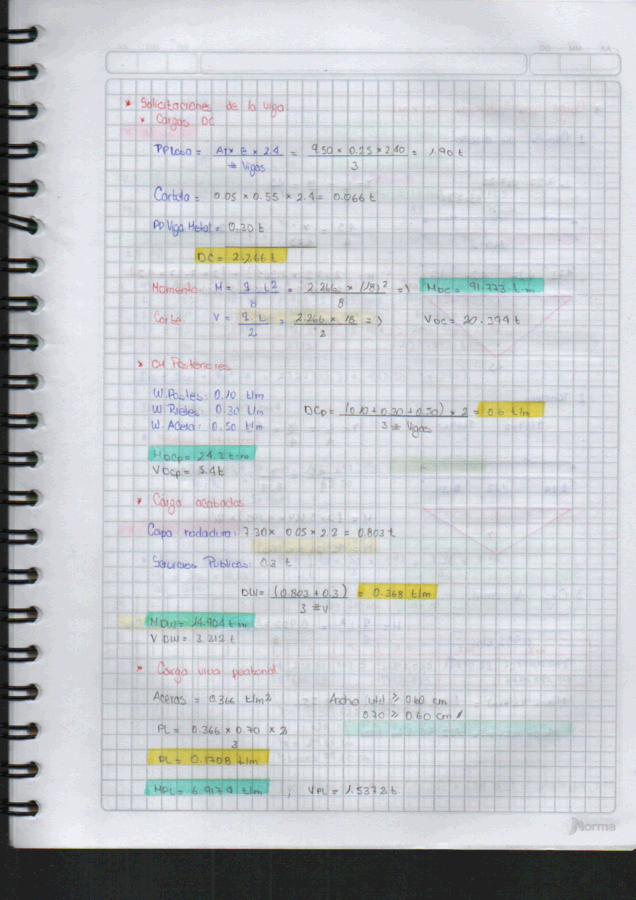 * Solicitaciones de la viga.
* Cargas DC
PPLosa = A1 x e x 2.4 / # Vigas = 9.50 x 0.25 x 2.40 / 3 = 1.90 t
Cartela = 0.05 x 0.55 x 2.4 = 0.066 t
PP Viga Metal = 0.30 t
DC = 2.266 t
Momento M = q · L² / 8 = 2.266 x (18)² / 8 =) MDC = 91.773 t-m
Corte V = q · L / 2 = 2.266 x 18 / 2 =) VDC = 20.394 t
* CM Posteriores
W. Postes: 0.10 t/m
W Rieles: 0.30 t/m
W. Acera: 0.50 t/m
DCp = (0.10 + 0.30 + 0.50) x 2 / 3 # Vigas = 0.6 t/m
MDCp = 24.3 t-m
VDCp = 5.4 t
* Carga acabados
Capa rodadura: 7.30 x 0.05 x 2.2 = 0.803 t
Servicios Publicos: 0.3 t
DW = (0.803 + 0.3) / 3 #V = 0.368 t/m
MDW = 14.904 t-m
VDW = 3.312 t
* Carga viva peatonal
Aceras = 0.366 t/m² Ancho util ≥ 0.60 cm
0.70 ≥ 0.60 cm
PL = 0.366 x 0.70 x 2 / 3
PL = 0.1708 t/m
MPL = 6.9174 t/m ; VPL = 1.5372 t
Norma